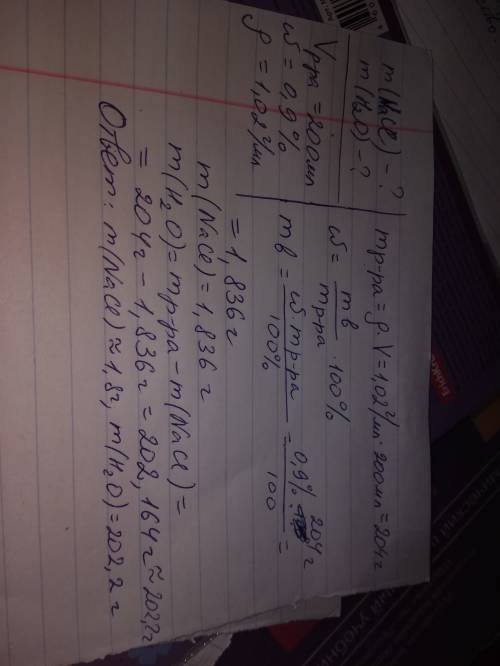 m(NaCl) - ?
m(H₂O) - ?
Vр-ра = 200мл
ω = 0,9%
ρ = 1,02 г/мл
mр-ра = ρ·V = 1,02 г/мл · 200мл = 204г
ω = mв / mр-ра · 100%
mв = ω · mр-ра / 100% = 0,9% · 204г / 100 =
= 1,836 г
m(NaCl) = 1,836 г
m(H₂O) = mр-ра - m(NaCl) =
= 204г - 1,836г = 202,164г ≈ 202,2г
Ответ: m(NaCl) ≈ 1,8г, m(H₂O) = 202,2 г